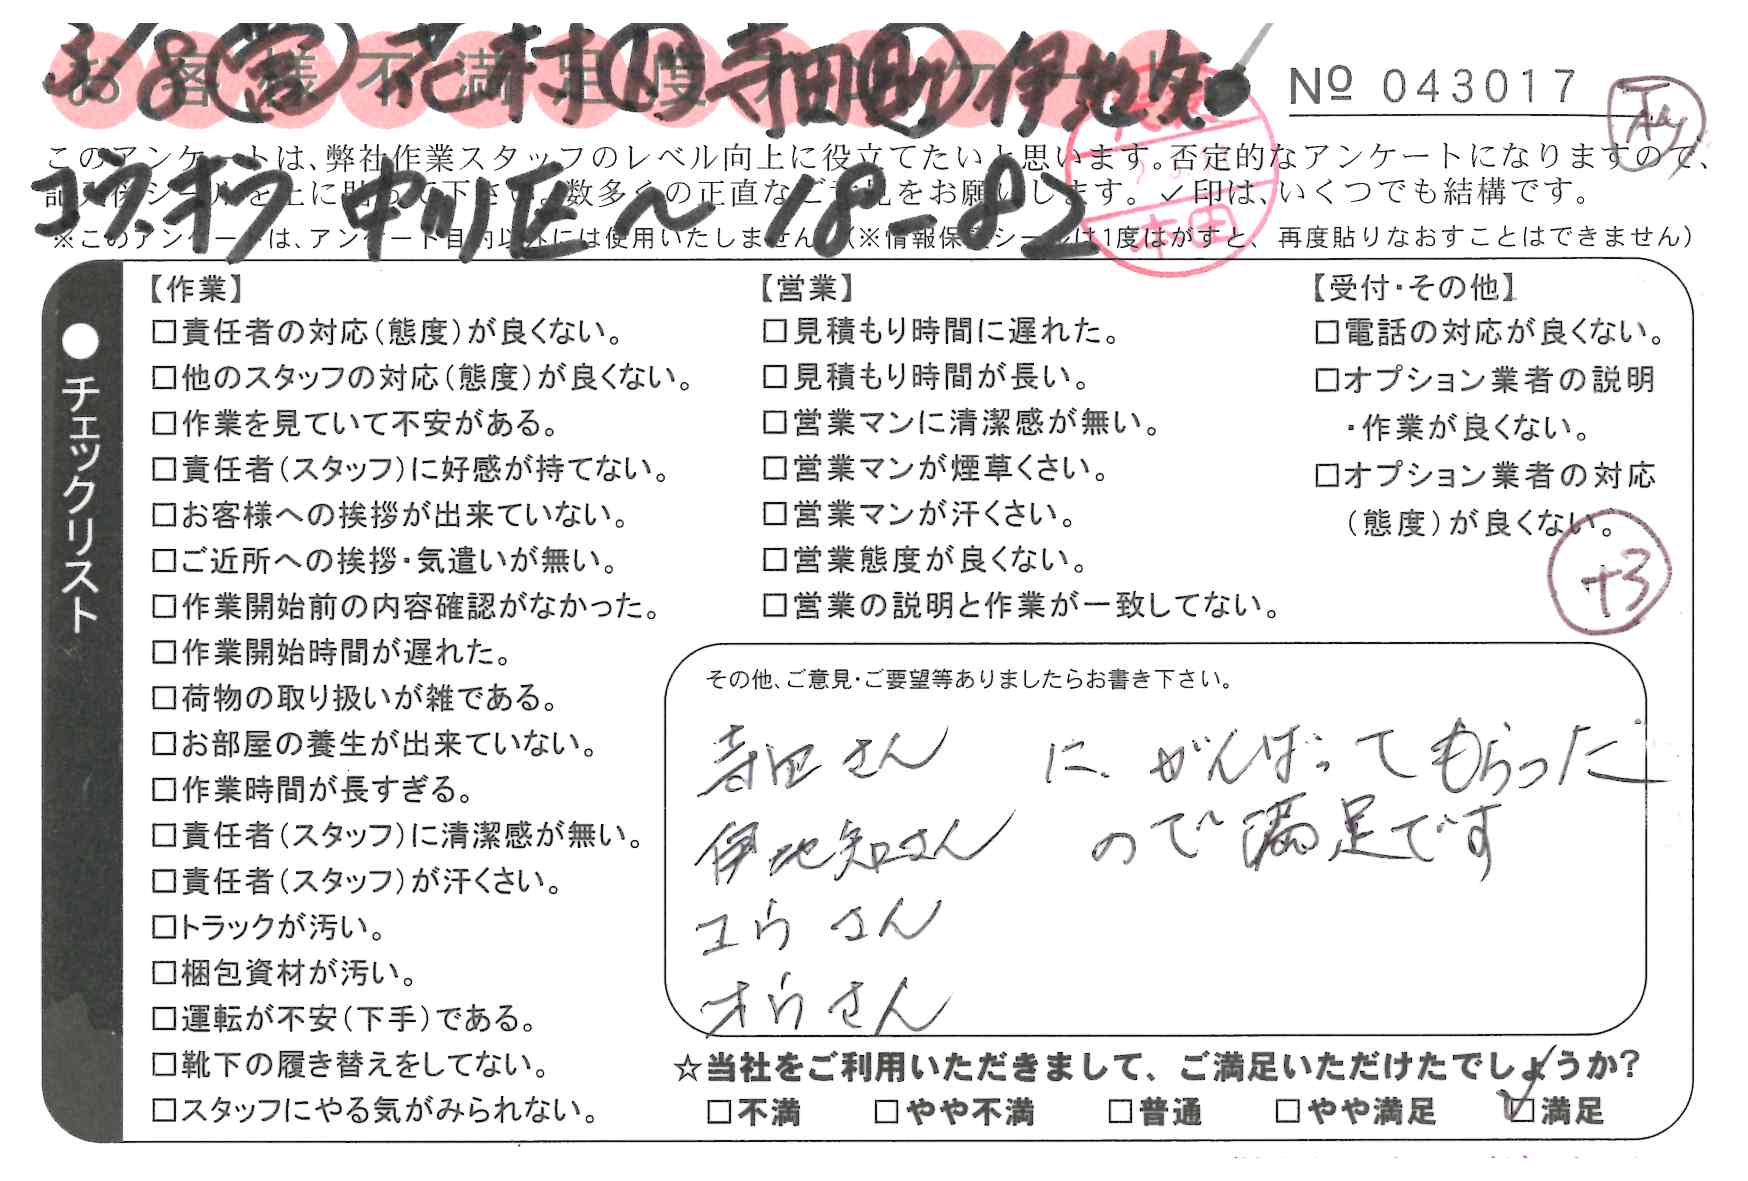 3/8(営)花村(作)寺田(助)伊地知
お客様不満足度アンケート
Nº 043017
このアンケートは、弊社作業スタッフのレベル向上に役立てたいと思います。否定的なアンケートになりますので、
コウ、オラ 中川区〜18-82
数多くの正直なご意見をお願いします。✓印は、いくつでも結構です。
※このアンケートは、アンケート目的以外には使用いたしません。(※情報保護シールは1度はがすと、再度貼りなおすことはできません)
本田
●チェックリスト
【作業】
□責任者の対応(態度)が良くない。
□他のスタッフの対応(態度)が良くない。
□作業を見ていて不安がある。
□責任者(スタッフ)に好感が持てない。
□お客様への挨拶が出来ていない。
□ご近所への挨拶・気遣いが無い。
□作業開始前の内容確認がなかった。
□作業開始時間が遅れた。
□荷物の取り扱いが雑である。
□お部屋の養生が出来ていない。
□作業時間が長すぎる。
□責任者(スタッフ)に清潔感が無い。
□責任者(スタッフ)が汗くさい。
□トラックが汚い。
□梱包資材が汚い。
□運転が不安(下手)である。
□靴下の履き替えをしてない。
□スタッフにやる気がみられない。
【営業】
□見積もり時間に遅れた。
□見積もり時間が長い。
□営業マンに清潔感が無い。
□営業マンが煙草くさい。
□営業マンが汗くさい。
□営業態度が良くない。
□営業の説明と作業が一致してない。
【受付・その他】
□電話の対応が良くない。
□オプション業者の説明
・作業が良くない。
□オプション業者の対応
(態度)が良くない。
+3
その他、ご意見・ご要望等ありましたらお書き下さい。
寺田さん に がんばってもらった
伊地知さん ので満足です
コウさん
オウさん
☆当社をご利用いただきまして、ご満足いただけたでしょうか?
□不満 □やや不満 □普通 □やや満足 ☑満足